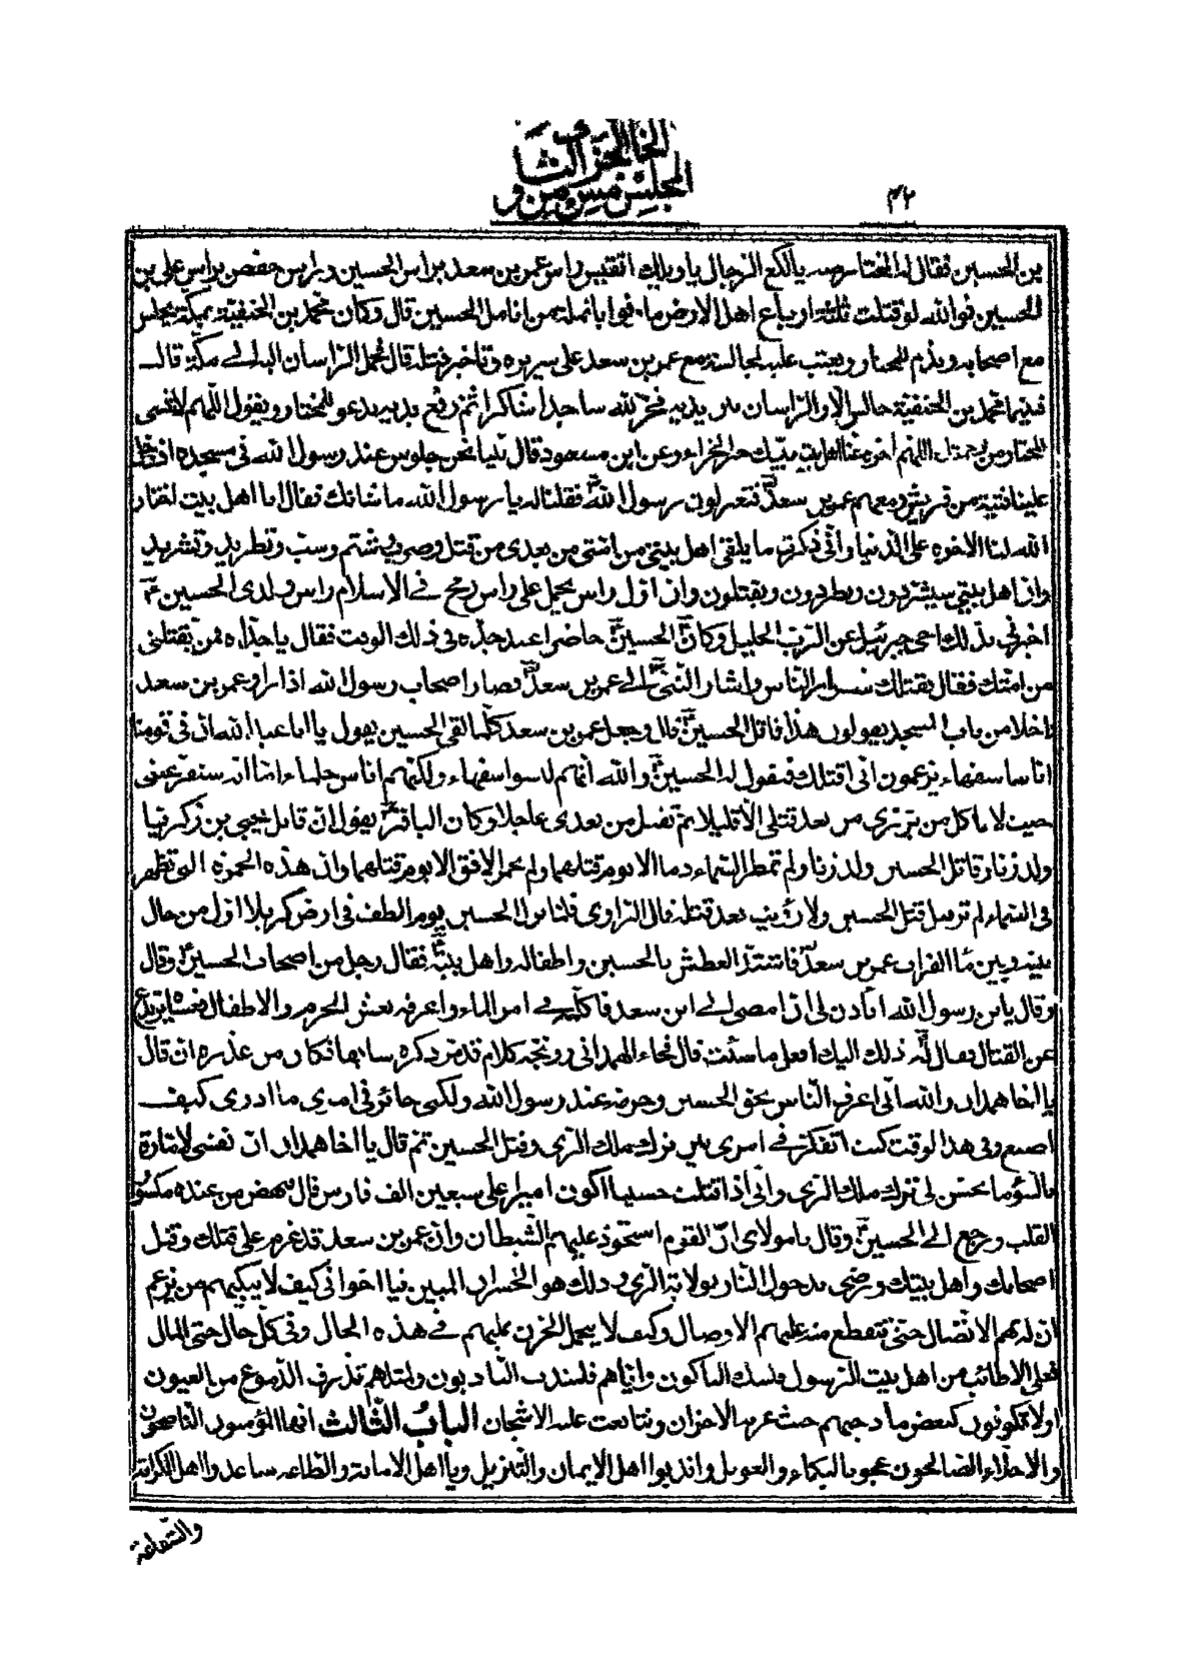 المجلس الخامس من الجزء الثاني و
٤٢
بن الحسين فقال له المختار صه يا لكع الرجال يا ويلك اتقيس راس عمر بن سعد براس الحسين وبراس حفص براس علي بن
الحسين فوالله لو قتلت ثلثة ارباع اهل الارض ما وفوا بانملة من انامل الحسين قال وكان محمد بن الحنفية بمكة يجلس
مع اصحابه ويذم المختار ويعتب عليه لمجالسته مع عمر بن سعد على سريره وتاخر قتله قال فحمل الراسان اليه الى مكة قال
فبينما محمد بن الحنفية جالس الا والراسان بين يديه فخر لله ساجدا شاكرا ثم رفع يديه يدعو للمختار ويقول اللهم لا تنسى
المختار من رحمتك اللهم اجزه عنا اهل بيت نبيك خير الجزاء وعن ابن مسعود قال بينا نحن جلوس عند رسول الله في مسجده اذ دخل
علينا فتية من قريش ومعهم عمر بن سعد فتغير لون رسول الله فقلنا له يا رسول الله ما شانك فقال انا اهل بيت اختار
الله لنا الاخرة على الدنيا واني ذكرت ما يلقى اهل بيتي من امتي من بعدي من قتل وضرب وشتم وسب وتطريد وتشريد
وان اهل بيتي سيشردون ويطردون ويقتلون وان اول راس يحمل على راس رمح في الاسلام راس ولدي الحسين ع
اخبرني بذلك اخي جبرئيل عن الرب الجليل وكان الحسين حاضرا عند جده في ذلك الوقت فقال يا جداه فمن يقتلني
من امتك فقال يقتلك شرار الناس واشار النبي الى عمر بن سعد فصار اصحاب رسول الله اذا راو عمر بن سعد
داخلا من باب المسجد يقولون هذا قاتل الحسين قال وجعل عمر بن سعد كلما لقي الحسين يقول يا ابا عبد الله ان في قومنا
اناسا سفهاء يزعمون اني اقتلك فيقول له الحسين والله انهم ليسوا سفهاء ولكنهم اناس حلماء اما انه ستقر عيني
حيث لا تاكل من بر الري من بعد قتلي الا قليلا ثم تقتل من بعدي عاجلا وكان الباقر يقول ان قاتل يحيى بن زكريا
ولد زنا وقاتل الحسين ولد زنا ولم تمطر السماء دما الا يوم قتلهما ولم يحمر الافق الا يوم قتلهما وان هذه الحمرة التي تظهر
في السماء لم تر قبل قتل الحسين بعد قتله قال الراوي فلما نزل الحسين يوم الطف في ارض كربلا اول من حال
بينه وبين ماء الفرات عمر بن سعد فاشتد العطش بالحسين واطفاله واهل بيته فقال رجل من اصحاب الحسين وقال
وقال يابن رسول الله اتاذن لي ان امضي الى ابن سعد فاكلمه في امر الماء واعرفه بعطش الحرم والاطفال فعساه يرتدع
عن القتال فقال له ذلك اليك افعل ما شئت قال فجاء الهمداني ووبخه كلام قد مر ذكره سابقا فكان من عذره ان قال
يا اخا همدان والله اني اعرف الناس بحق الحسين وحرمته عند رسول الله ولكني حائر في امري ما ادري كيف
اصنع وفي هذا الوقت كنت اتفكر في امري بين ترك ملك الري وقتل الحسين ثم قال يا اخا همدان ان نفسي لامارة
بالسوء ما يحسن لي ترك ملك الري واني اذا قتلت حسينا اكون اميرا على سبعين الف فارس قال فنهض من عنده مكسور
القلب ورجع الى الحسين وقال يا مولاي ان القوم استحوذ عليهم الشيطان وان عمر بن سعد قد عزم على قتلك وقتل
اصحابك واهل بيتك ورضي بدخول النار بولاية الري وذلك هو الخسران المبين فيا اخواني كيف لا يبكيهم من يزعم
ان له بهم الاتصال حتى تتقطع منه عليهم الاوصال وكيف لا يجمل الحزن عليهم في هذه الحال وفي كل حال حتى المال
فعلى الاطائب من اهل بيت الرسول فليبك الباكون واياهم فليندب النادبون ولمثلهم تذرف الدموع من العيون
اولا تكونون كبعض مادحيهم حيث عرته الاحزان وتتابعت عليه الاشجان الباب الثالث ايها المؤمنون الناصحون
والاخلاء الصالحون عجوا بالبكاء والعويل واندبوا اهل الايمان والتنزيل ويا اهل الامانة والطاعة ساعدوا اهل الكرامة
والشفاعة